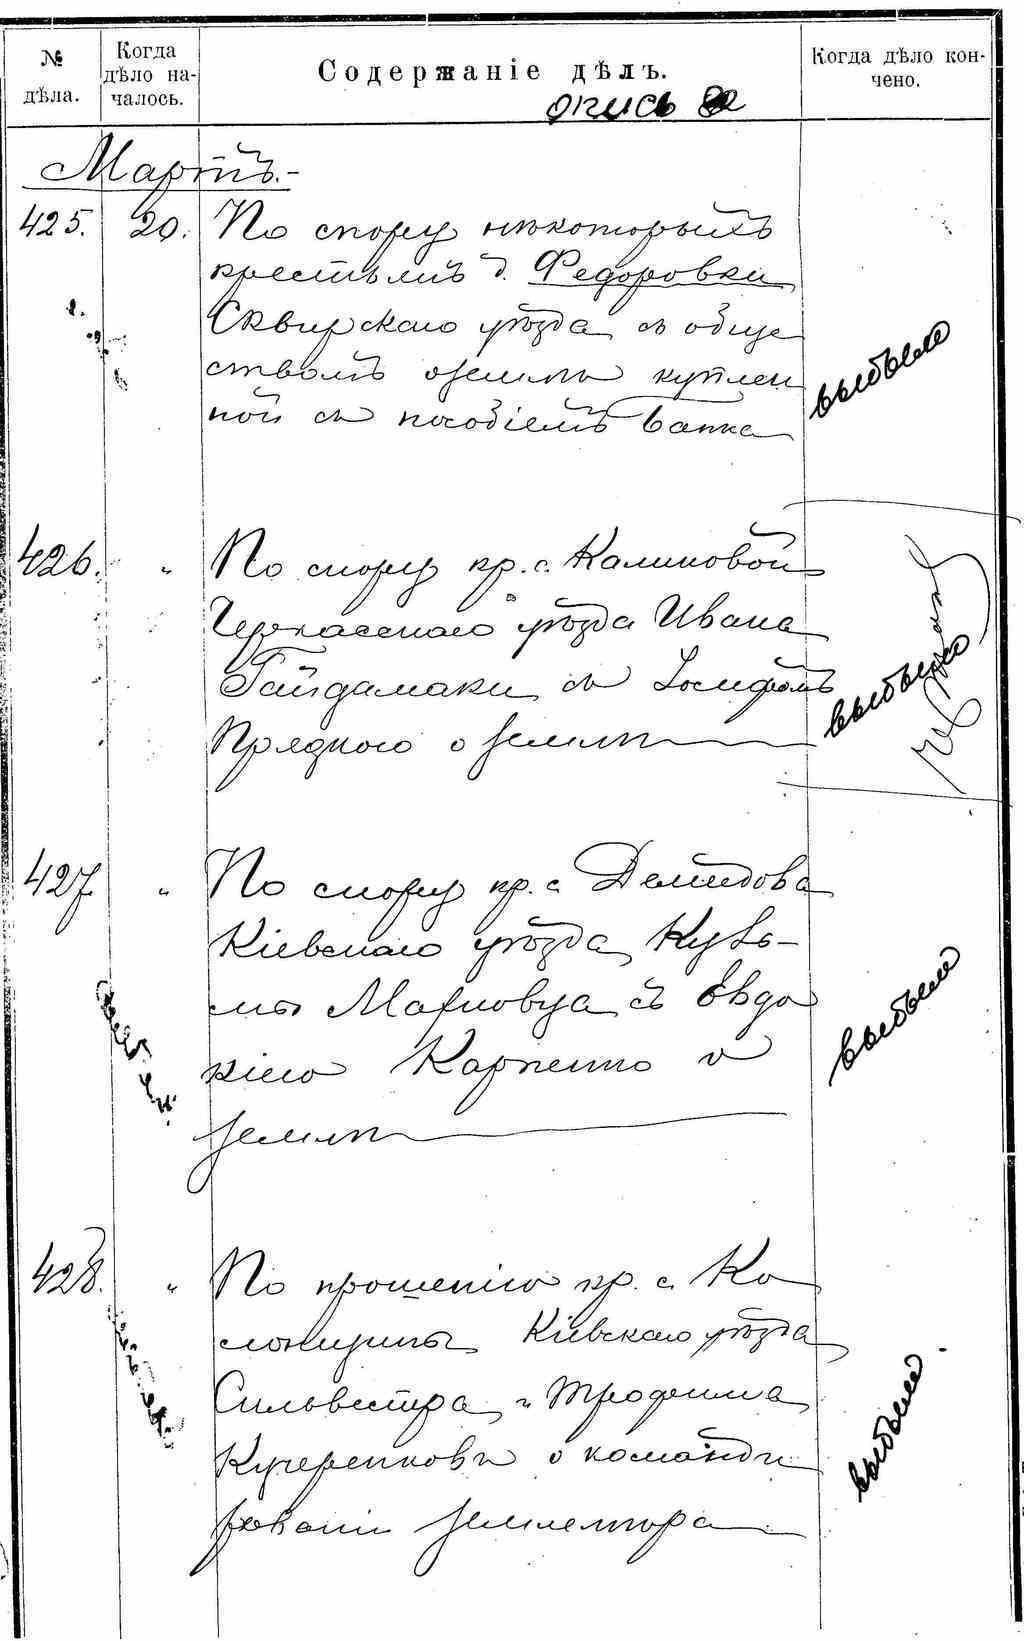 № дѣла.
Когда дѣло на-
чалось.
Содержаніе дѣлъ.
Когда дѣло кон-
чено.
опись
Мартъ.-
425. 20. По спору нѣкоторыхъ
крестьянъ д. Федоровки
Сквирскаго уѣзда съ обще
ствомъ о землѣ куплен
ной съ пособіемъ банка
выбыло
426. " По спору кр. с. Калиновой
Черкасскаго уѣзда Ивана
Гайдамаки съ Іосифомъ
Прядкого о землѣ
выбыло
427 " По спору кр. с Демидова
Кіевскаго уѣзда Кузь-
мы Марковца съ Евдо
кіею Карпенко о
землѣ
выбыло
428. " По прошенію кр. с. Ко
лонщины Кіевскаго уѣзда
Сильвестра и Трофима
Кучеренковъ о команди
рованіи землемѣра
выбыло